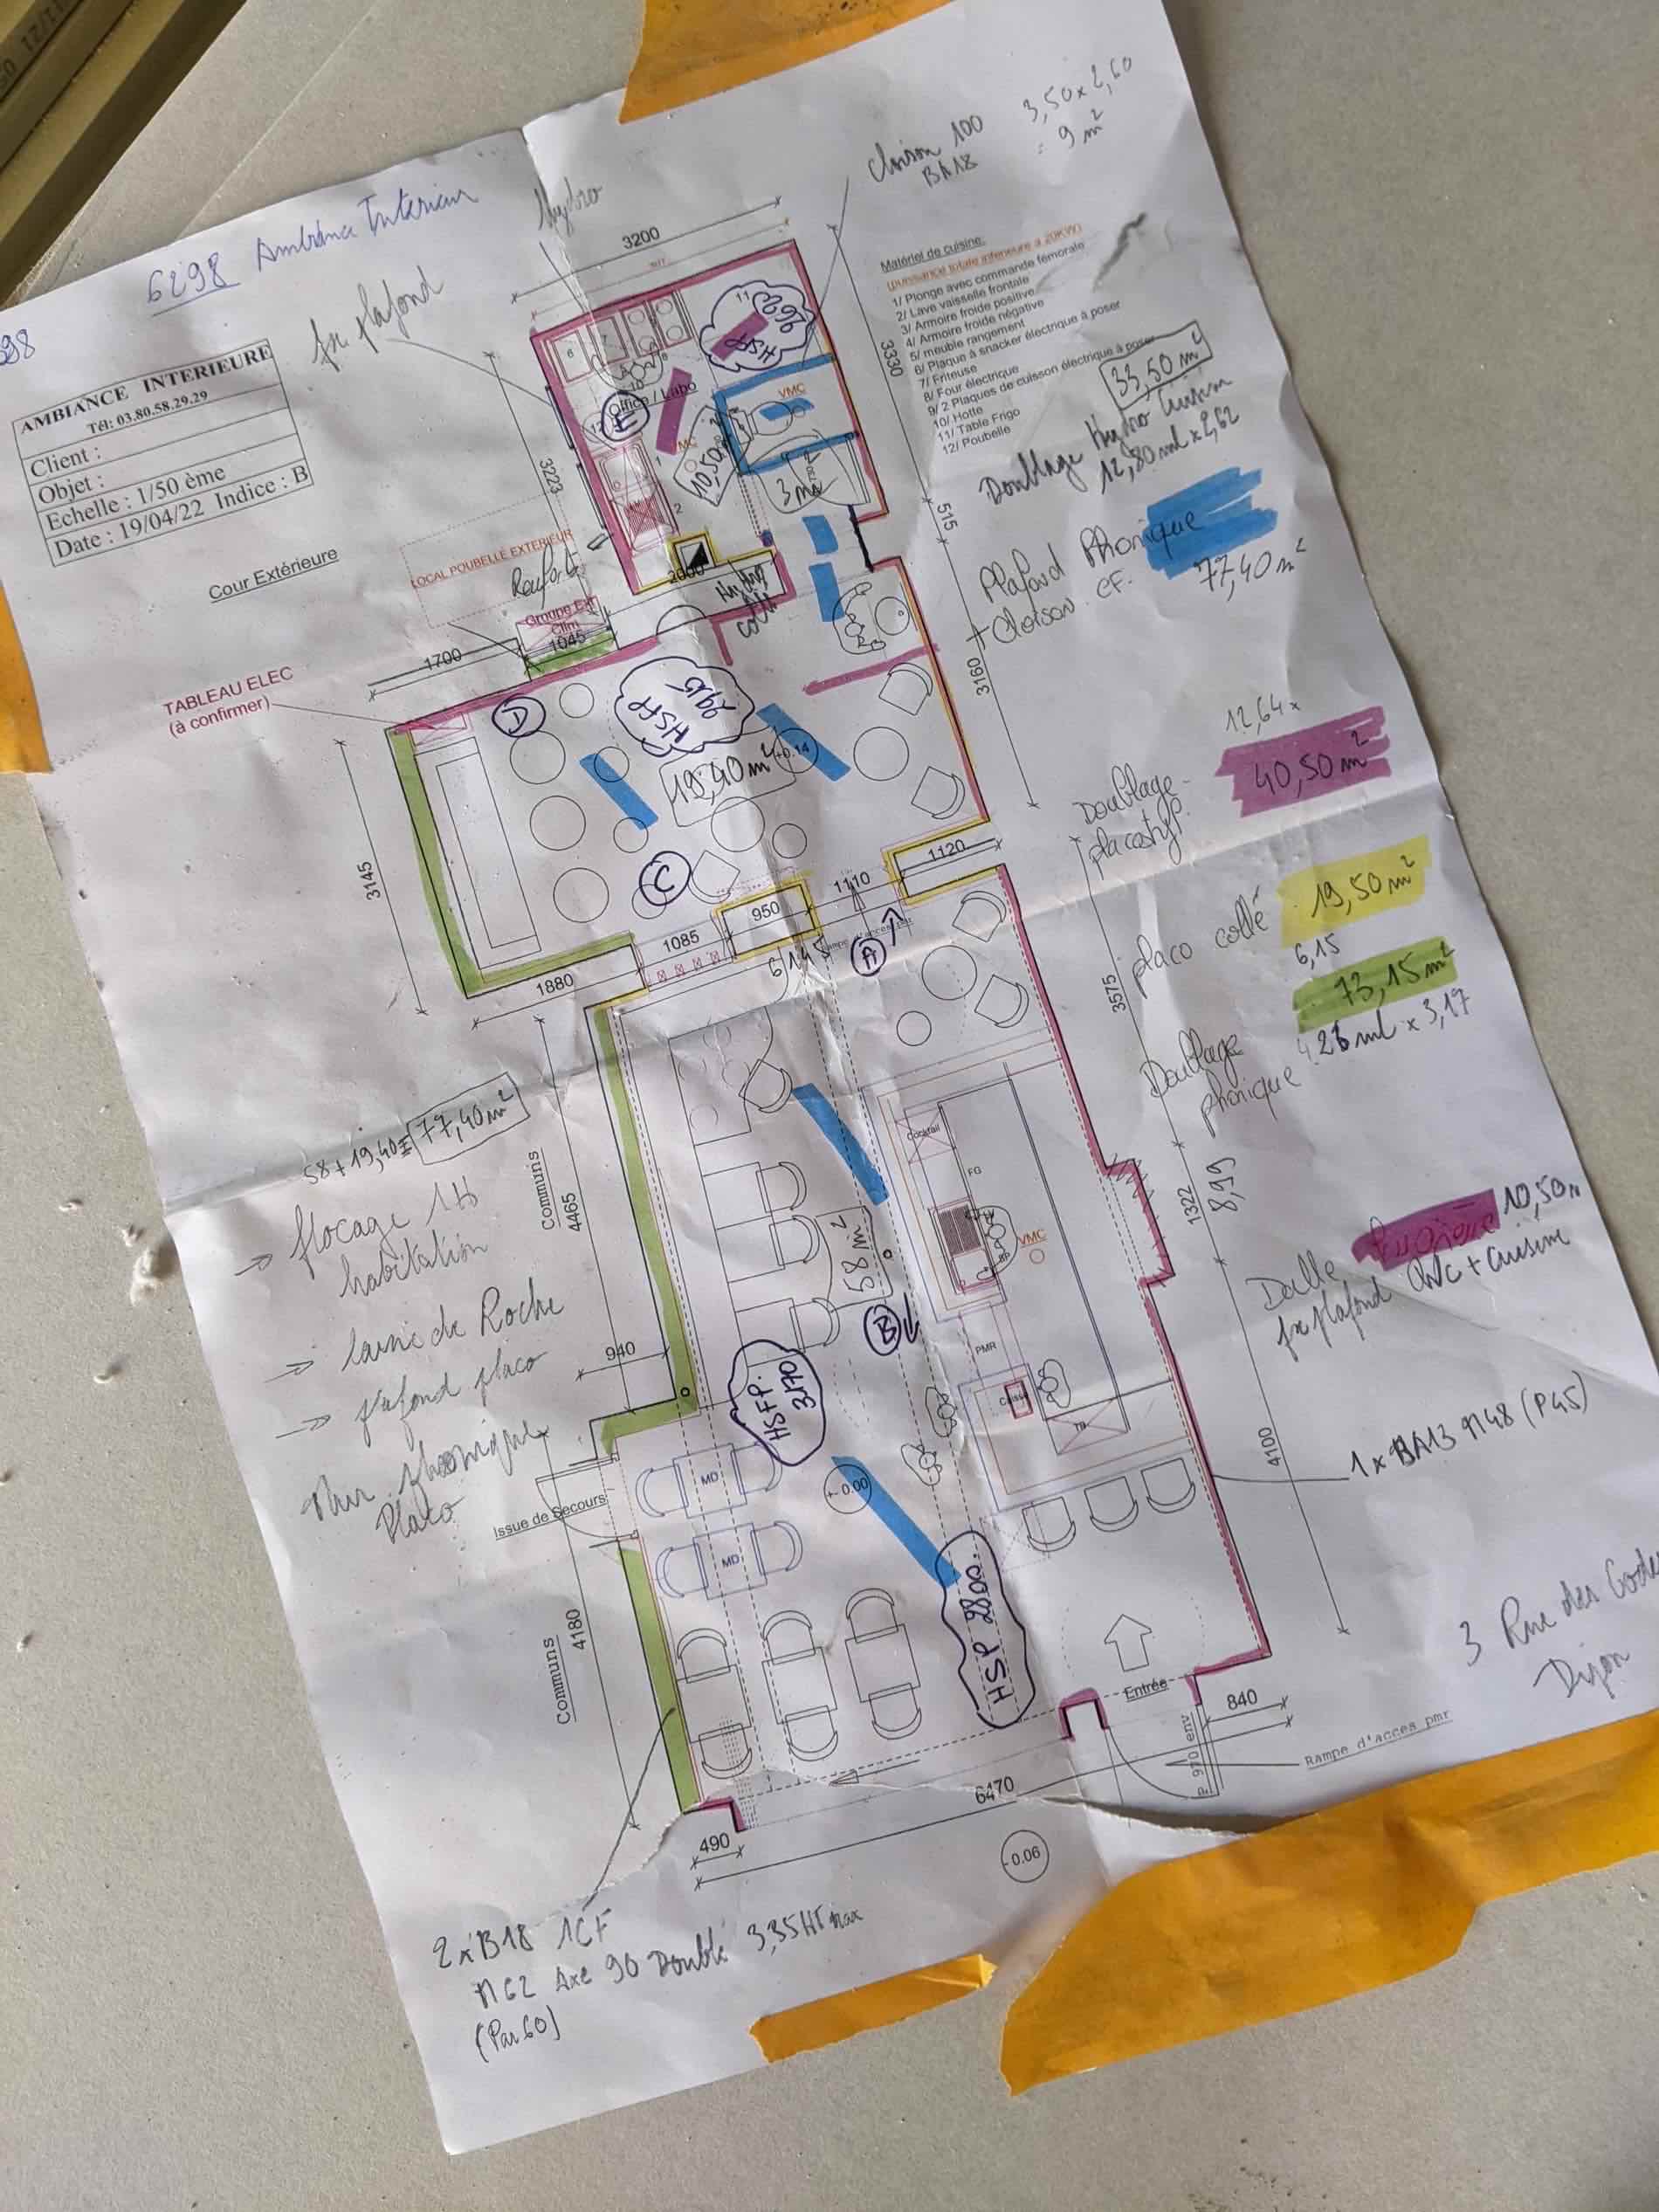 6298 Ambiance Interieur
98
AMBIANCE INTERIEURE
Tél: 03.80.58.29.29
Client :
Objet :
Echelle : 1/50 ème
Date : 19/04/22 Indice : B
fx plafond
Hydro
cloison 100
BA18
3,50x2,60
= 9 m²
Matériel de cuisine:
(puissance totale inferieure a 20KW)
1/ Plonge avec commande fémorale
2/ Lave vaisselle frontale
3/ Armoire froide positive
4/ Armoire froide négative
5/ meuble rangement
6/ Plaque à snacker électrique à poser
7/ Friteuse
8/ Four électrique
9/ 2 Plaques de cuisson électrique à poser
10/ Hotte
11/ Table Frigo
12/ Poubelle
33,50 m²
Doublage Hydro Cuisine
12,80 ml x 2,62
Plafond Phonique
+ Cloison CF.
77,40 m²
12,64 x
Doublage
placostyl
40,50 m²
placo collé
19,50 m²
6,15
73,15 m²
Doublage
phonique
26 ml x 3,17
Dalle
10,50
fx plafond WC + Cuisine
1 x BA13 M48 (P45)
3 Rue des Gode
Dijon
Cour Extérieure
LOCAL POUBELLE EXTERIEUR
Renfort
Groupe Ext
Clim
TABLEAU ELEC
(à confirmer)
3200
3330
3223
515
3160
2000
1045
1700
3145
1880
1085
950
1110
1120
3575
1322
8,99
4100
4465
940
4180
490
6470
840
Office / Labo
HSFP
VMC
10,50
3 m²
Hydro
collé
HSFP
2915
19,40 m²
+0.14
A
B
C
D
E
6,145
Rampe d'acces
58+19,40=77,40m²
→ flocage 1H
habitation
→ laine de Roche
→ plafond placo
Mur phonique
Placo
Communs
Communs
Issue de Secours
Cocktail
FG
VMC
58 m²
PMR
Caisse
TR
HSFP.
3170
MD
MD
+-0.00
HSP 2800.
Entrée
P. 970 env
Rampe d'acces pmr
-0.06
2 x B18 1CF
M62 Axe 90 Doublé 3,35HT max
(Par 60)